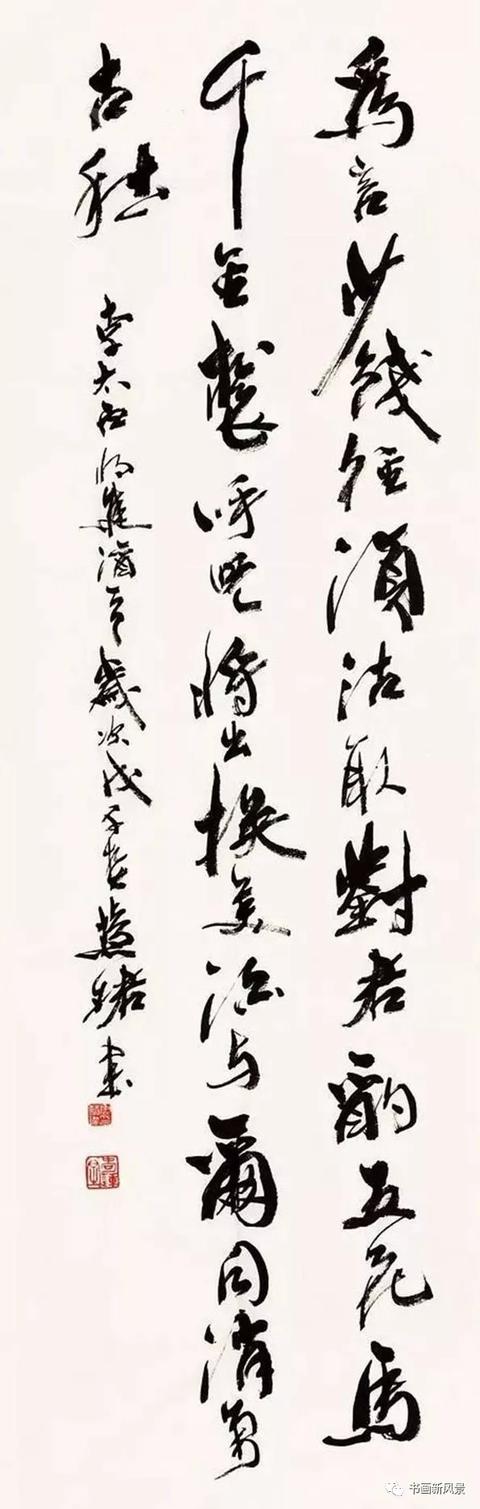 為言少錢徑須沽取對君酌五花馬
千金裘呼兒將出換美酒与爾同消萬
古愁
李太白將進酒 歲次戊子 書
书画新风景